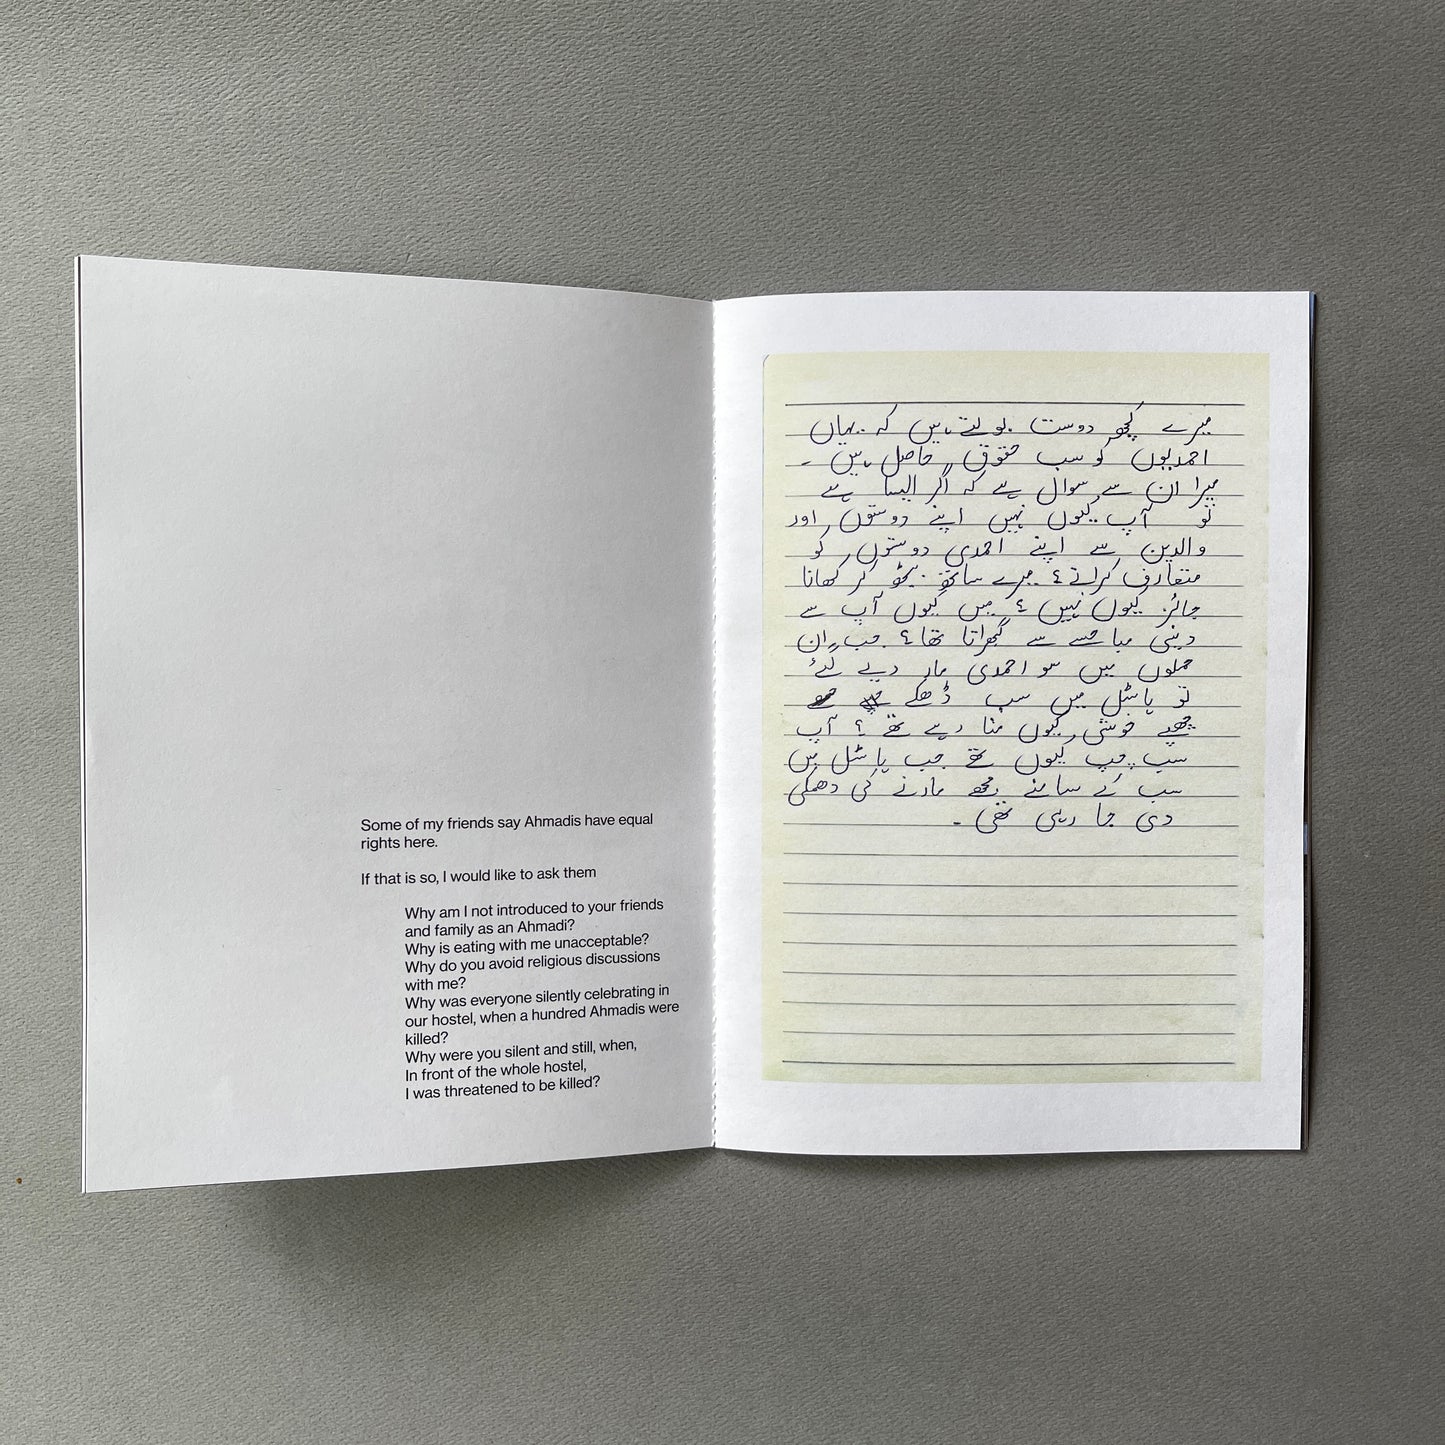 Some of my friends say Ahmadis have equal
rights here.
If that is so, I would like to ask them
Why am I not introduced to your friends
and family as an Ahmadi?
Why is eating with me unacceptable?
Why do you avoid religious discussions
with me?
Why was everyone silently celebrating in
our hostel, when a hundred Ahmadis were
killed?
Why were you silent and still, when,
In front of the whole hostel,
I was threatened to be killed?
میرے کچھ دوست بولتے ہیں کہ یہاں
احمدیوں کو سب حقوق حاصل ہیں ۔
میرا ان سے سوال ہے کہ اگر ایسا ہے
تو آپ کیوں نہیں اپنے دوستوں اور
والدین سے اپنے احمدی دوستوں کو
متعارف کراتے؟ میرے ساتھ بیٹھ کر کھانا
جائز کیوں نہیں؟ میں کیوں آپ سے
دینی مباحثے سے گھبراتا تھا؟ جب ان
حملوں میں سو احمدی مار دیے گئے
تو ہاسٹل میں سب ڈھکے
چھپے خوشی کیوں منا رہے تھے؟ آپ
سب چپ کیوں تھے جب ہاسٹل میں
سب کے سامنے مجھے مارنے کی دھمکی
دی جا رہی تھی ۔